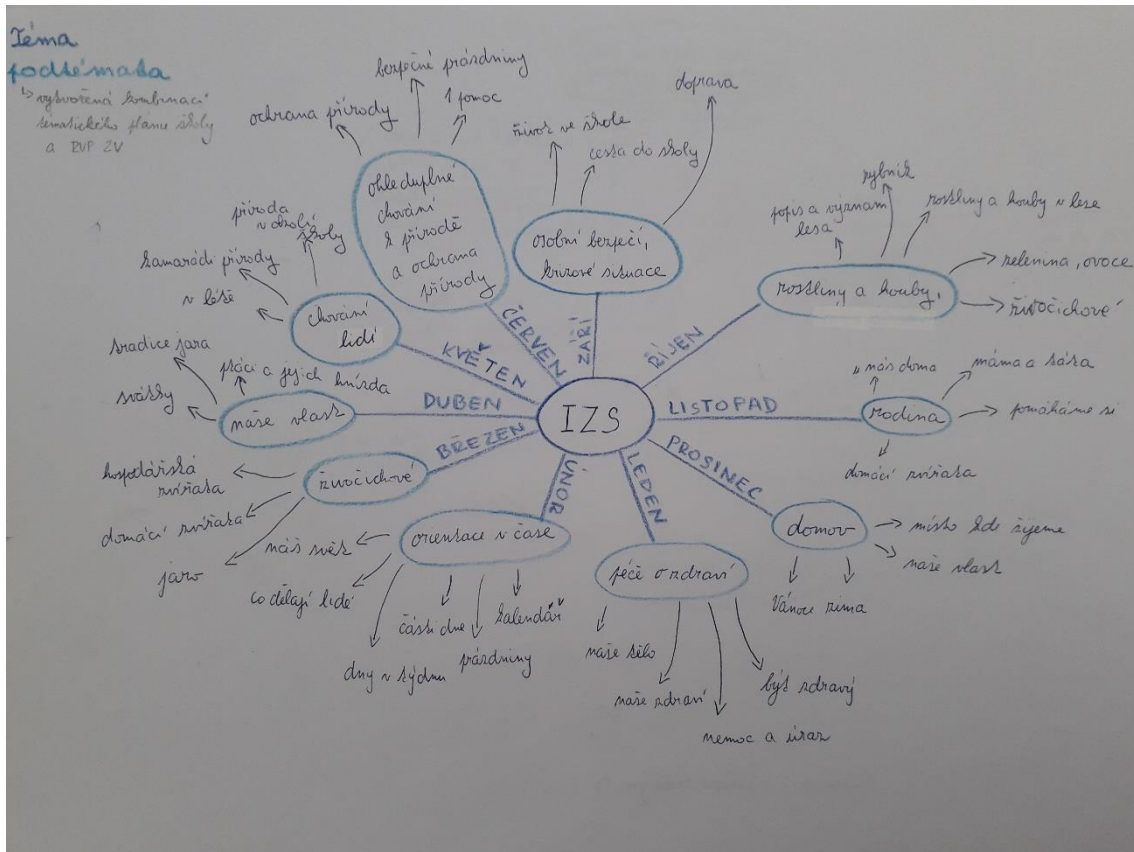 Téma
podtémata
↳ vytvořená kombinací
tematického plánu školy
a RVP ZV
IZS
ZÁŘÍ
osobní bezpečí,
krizové situace
život ve škole
cesta do školy
doprava
ŘÍJEN
rostliny a houby,
popis a význam
lesa
rybník
rostliny a houby v lese
zelenina, ovoce
živočichové
LISTOPAD
rodina
u nás doma
máma a táta
pomáháme si
domácí zvířata
PROSINEC
domov
místo kde žijeme
naše vlast
Vánoce zima
LEDEN
péče o zdraví
naše tělo
naše zdraví
nemoc a úraz
být zdravý
ÚNOR
orientace v čase
náš svět
co dělají lidé
dny v týdnu
části dne
prázdniny
kalendář
BŘEZEN
živočichové
hospodářská
zvířata
domácí zvířata
jaro
DUBEN
naše vlast
tradice jara
ptáci a jejich hnízda
svátky
KVĚTEN
chování
lidí
příroda
v okolí
školy
kamarádi přírody
v létě
ČERVEN
ohleduplné
chování
k přírodě
a ochrana
přírody
ochrana přírody
bezpečné prázdniny
1 pomoc